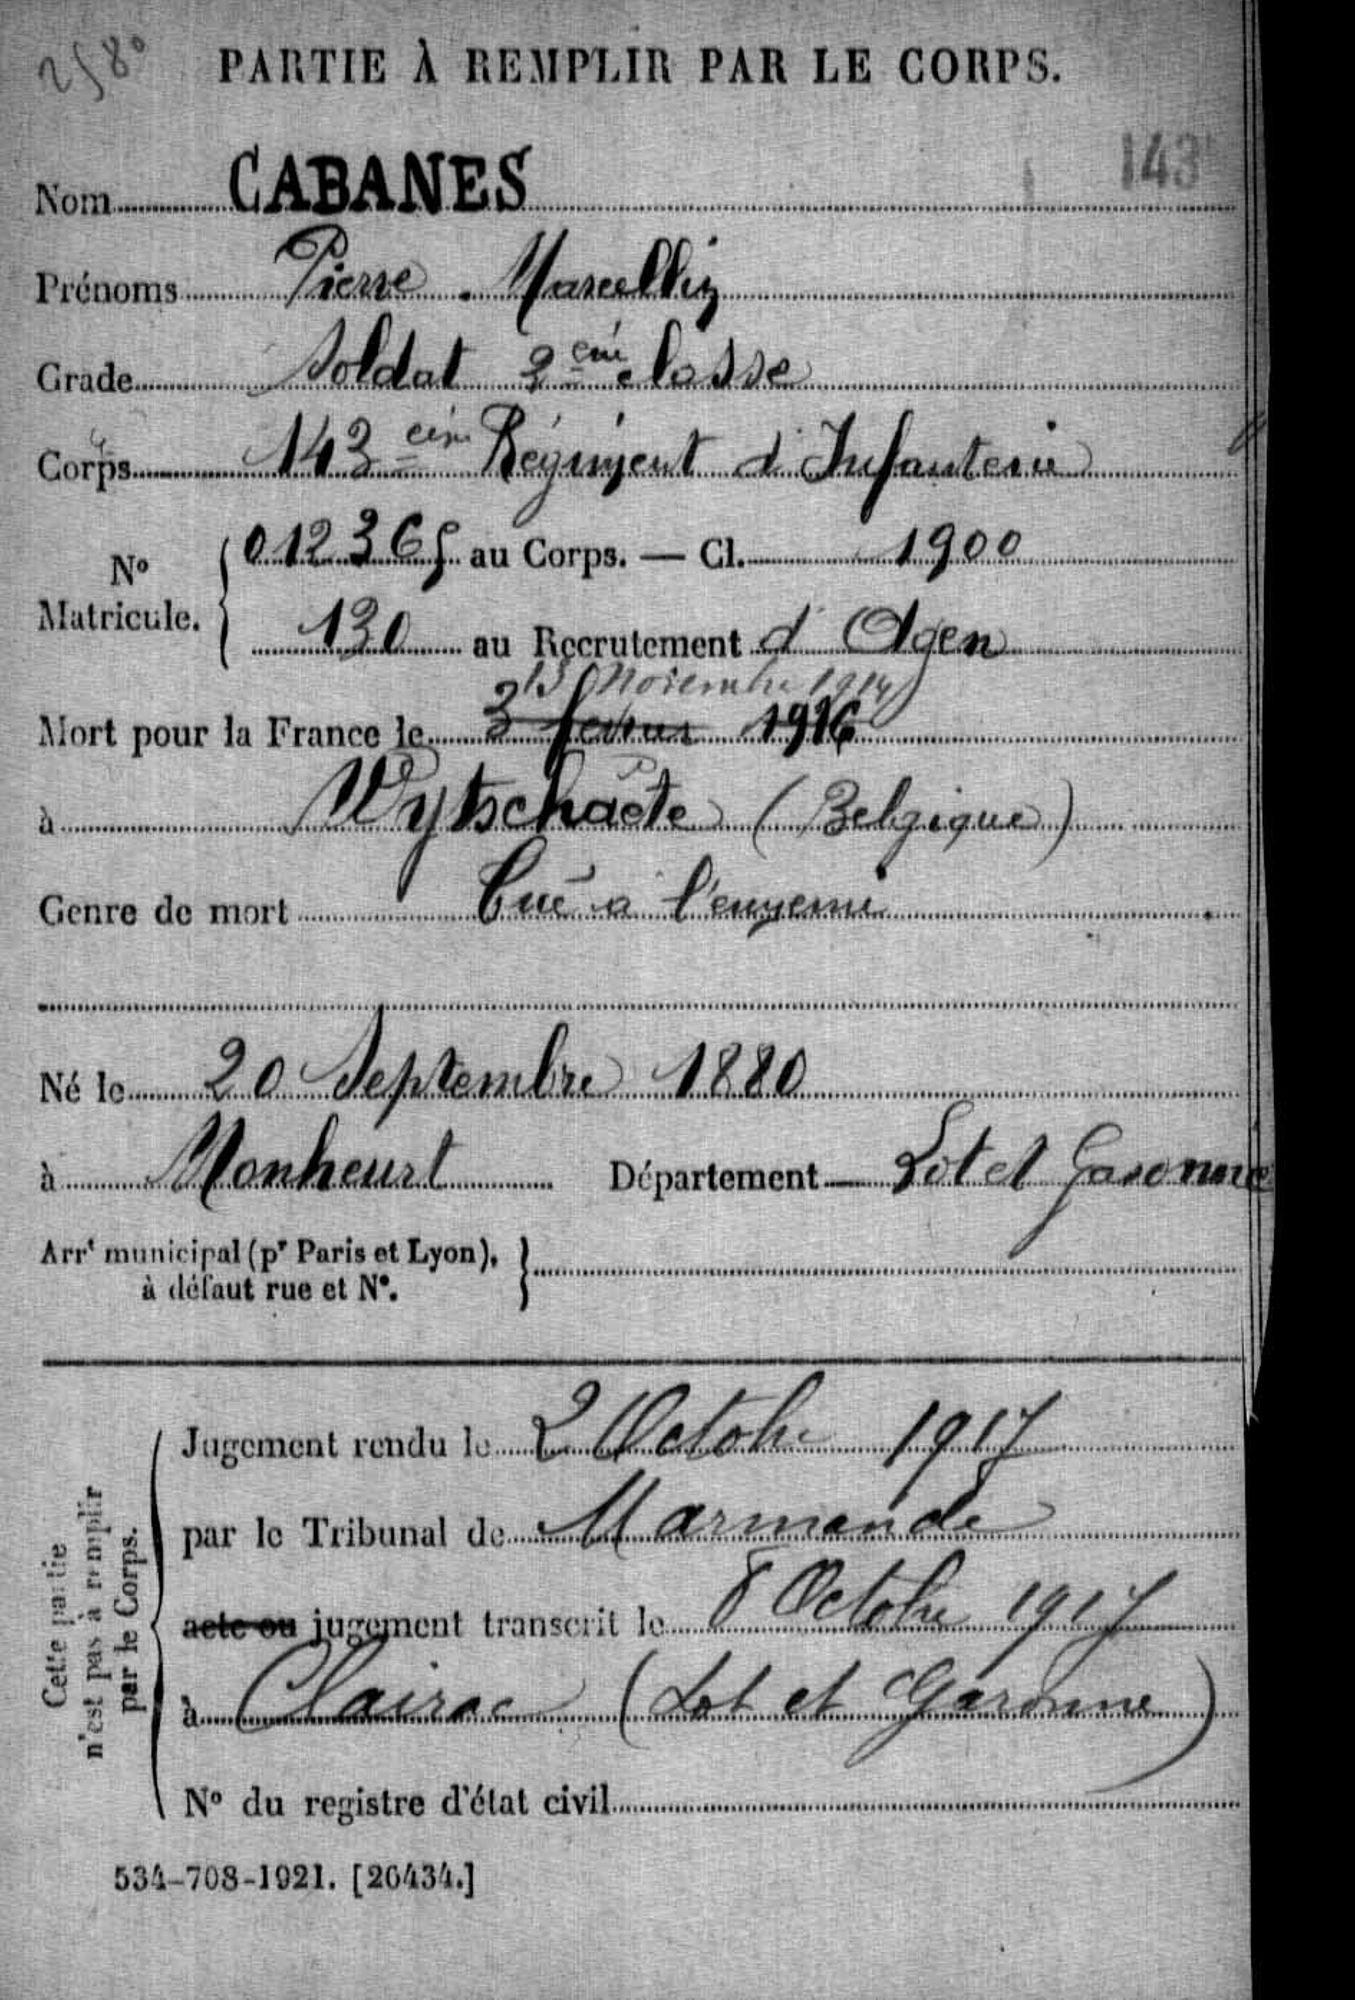 2580
PARTIE À REMPLIR PAR LE CORPS.
143
Nom CABANES
Prénoms Pierre. Marcellin
Grade Soldat 2eme classe
Corps 143eme Régiment d'Infanterie
N° Matricule. 012365 au Corps. — Cl. 1900
130 au Recrutement d'Agen
13 Novembre 1914
Mort pour la France le 3 fevrier 1916
à Wytschaete (Belgique)
Genre de mort Tué a l'ennemi
Né le 20 Septembre 1880
à Monheurt Département Lot et Garonne
Arrt municipal (pr Paris et Lyon),
à défaut rue et N°.
Cette partie
n'est pas à remplir
par le Corps.
Jugement rendu le 2 Octobre 1917
par le Tribunal de Marmande
acte ou jugement transcrit le 8 Octobre 1917
à Clairac (Lot et Garonne)
N° du registre d'état civil
534-708-1921. [26434.]